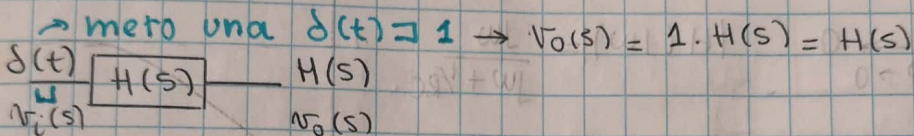 → meto una δ(t) ⊐ 1 → Vo(s) = 1 . H(s) = H(s)
δ(t) H(s) H(s)
Vi(s) Vo(s)